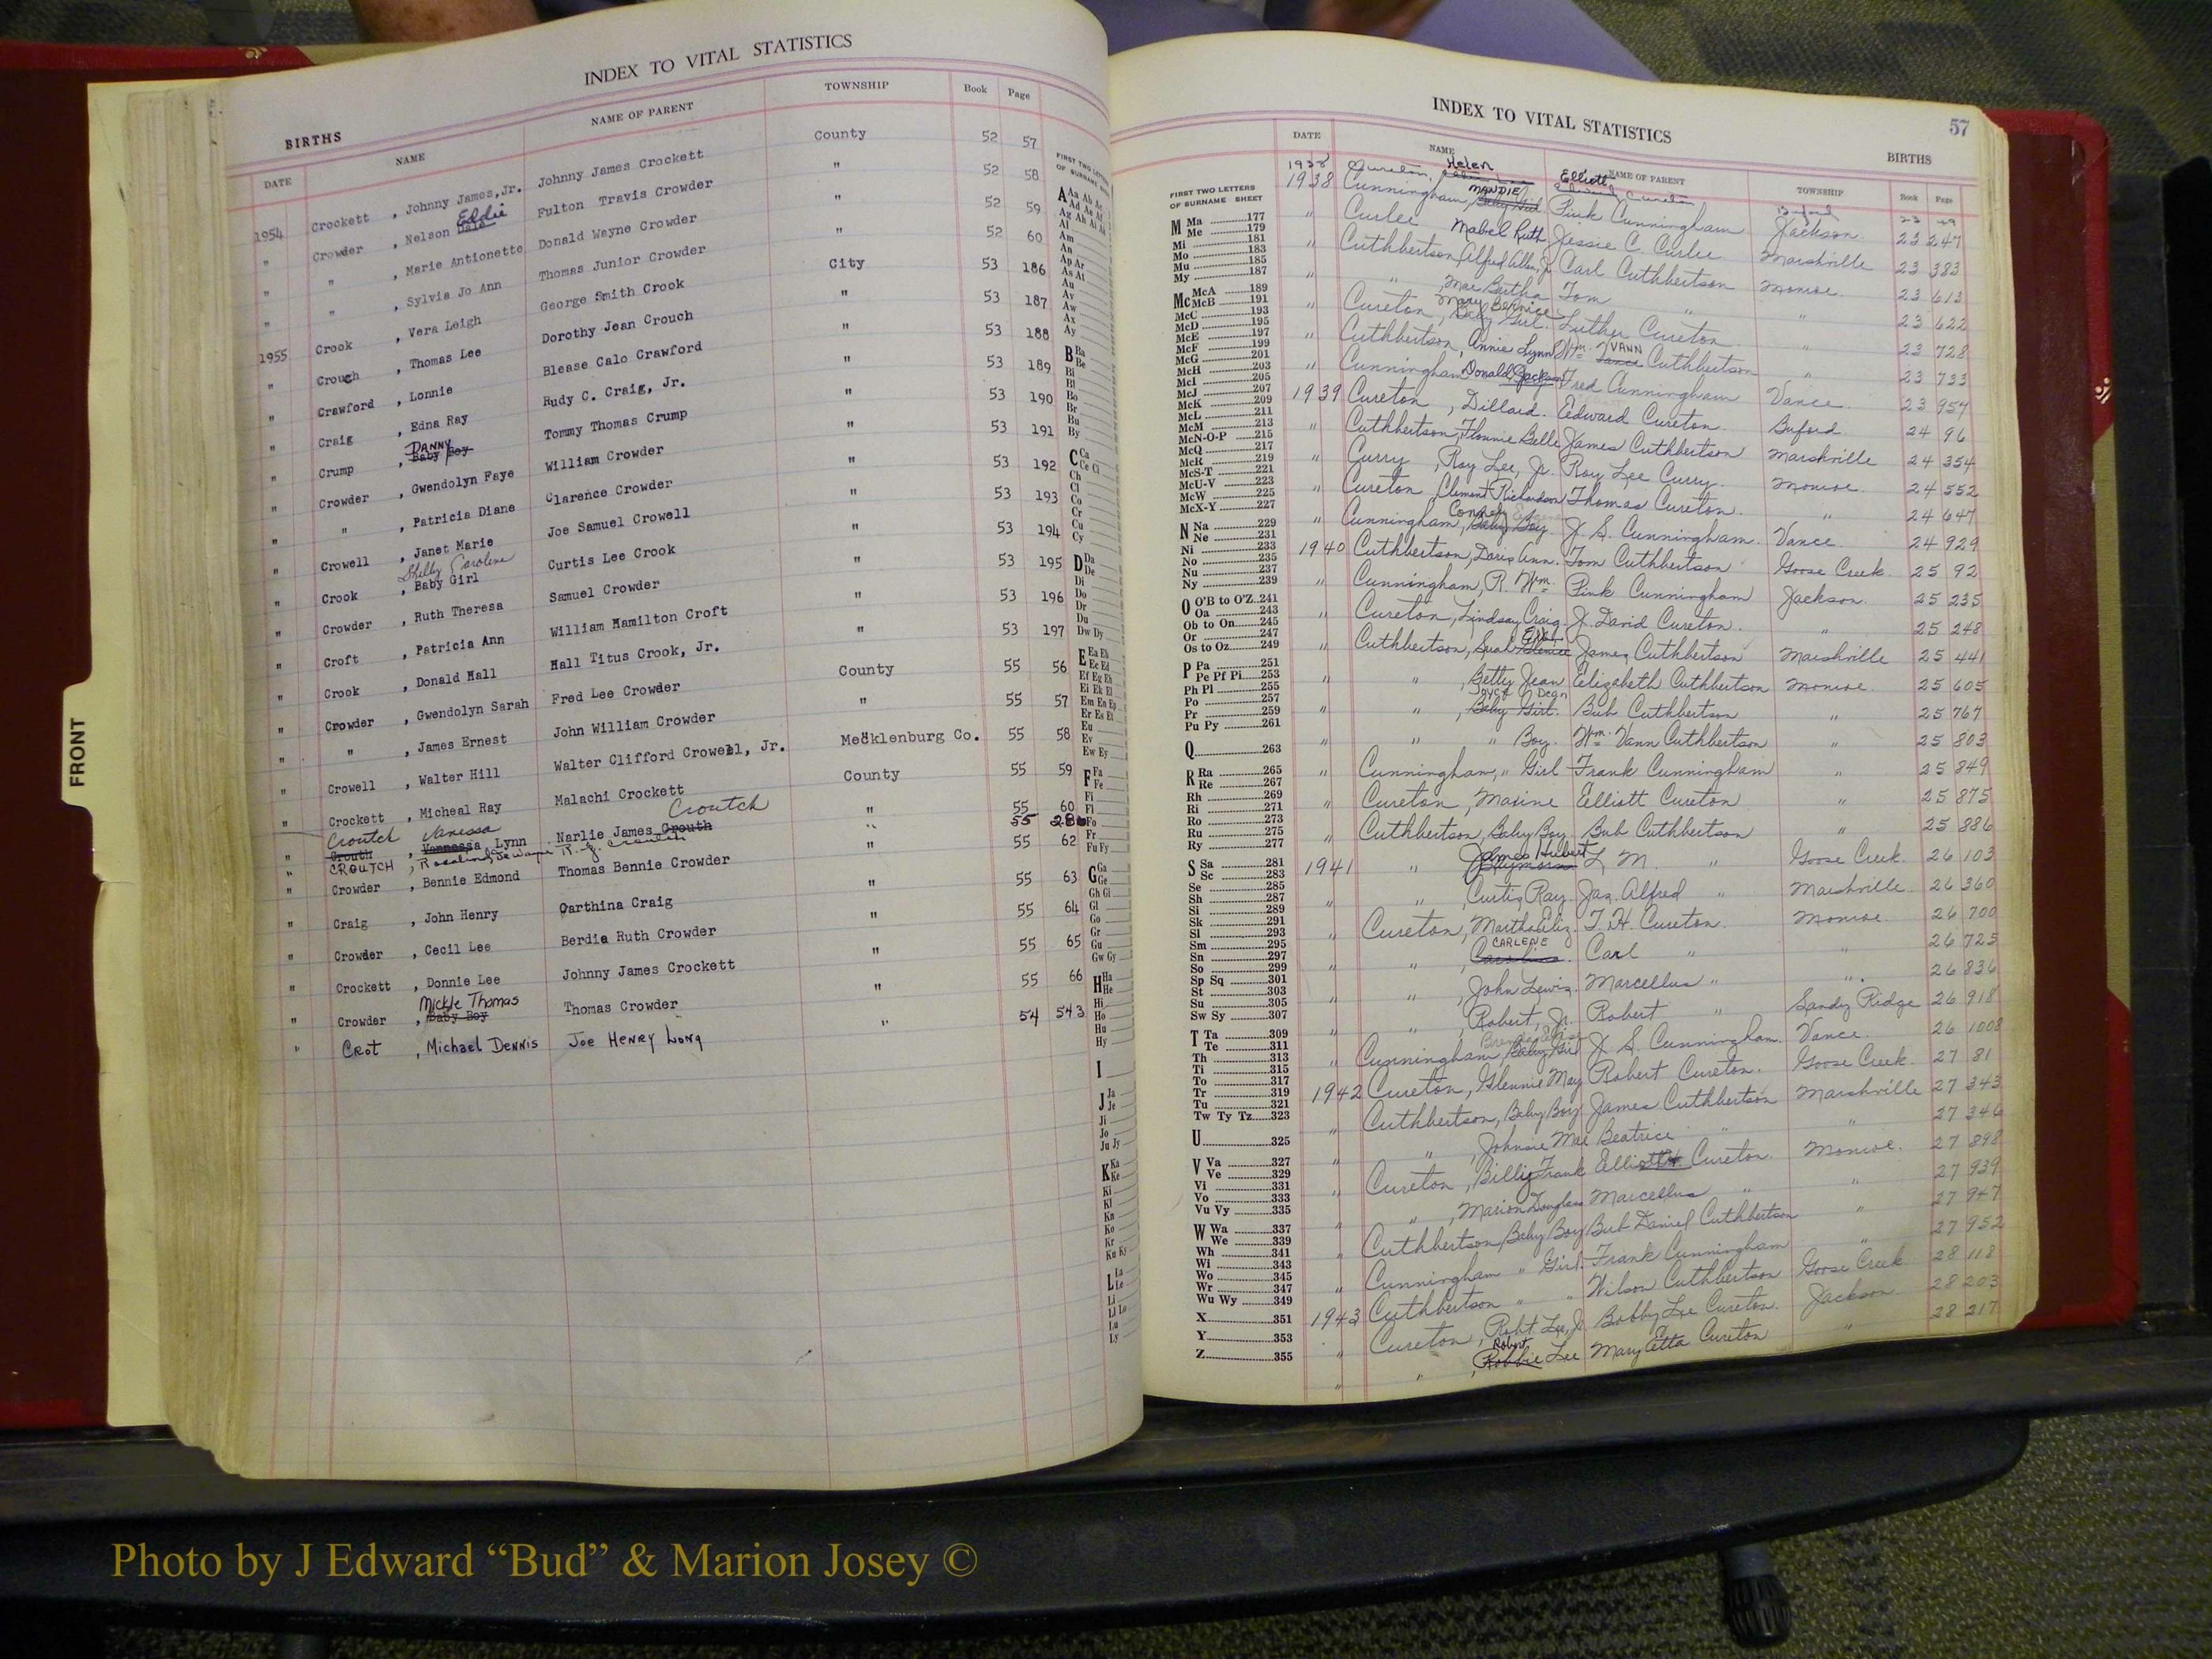 INDEX TO VITAL STATISTICS
BIRTHS
DATE NAME NAME OF PARENT TOWNSHIP Book Page
1954 Crockett , Johnny James, Jr. Johnny James Crockett County 52 57
" Crowder , Nelson Dale Eddie Fulton Travis Crowder " 52 58
" " , Marie Antionette Donald Wayne Crowder " 52 59
" " , Sylvia Jo Ann Thomas Junior Crowder " 52 60
1955 Crook , Vera Leigh George Smith Crook City 53 186
" Crouch , Thomas Lee Dorothy Jean Crouch " 53 187
" Crawford , Lonnie Blease Calo Crawford " 53 188
" Craig , Edna Ray Rudy C. Craig, Jr. " 53 189
" Crump , Baby Boy DANNY Tommy Thomas Crump " 53 190
" Crowder , Gwendolyn Faye William Crowder " 53 191
" " , Patricia Diane Clarence Crowder " 53 192
" Crowell , Janet Marie Joe Samuel Crowell " 53 193
" Crook , Baby Girl Shelly Caroline Curtis Lee Crook " 53 194
" Crowder , Ruth Theresa Samuel Crowder " 53 195
" Croft , Patricia Ann William Hamilton Croft " 53 196
" Crook , Donald Hall Hall Titus Crook, Jr. " 53 197
" Crowder , Gwendolyn Sarah Fred Lee Crowder County 55 56
" " , James Ernest John William Crowder " 55 57
" Crowell , Walter Hill Walter Clifford Crowell, Jr. Mecklenburg Co. 55 58
" Crockett , Micheal Ray Malachi Crockett County 55 59
Croutch Vanessa Croutch
" Crouth , Vannessa Lynn Narlie James Crouth " 55 60
" CROUTCH , Rosalind Croutch " 55
" Crowder , Bennie Edmond Thomas Bennie Crowder " 55 62
" Craig , John Henry Carthina Craig " 55 63
" Crowder , Cecil Lee Berdia Ruth Crowder " 55 64
" Crockett , Donnie Lee Johnny James Crockett " 55 65
" Crowder , Baby Boy Mickle Thomas Thomas Crowder " 55 66
" CROT , Michael DENNIS JOE HENRY LONG " 54 543
FRONT
FIRST TWO LETTERS
OF SURNAME SHEET
INDEX TO VITAL STATISTICS 57
BIRTHS
DATE NAME NAME OF PARENT TOWNSHIP Book Page
1938 Cureton, Helen Elliott Cureton Buford 23 49
1938 Cunningham, Baby Girl MANDIE Pink Cunningham Jackson 23 247
" Curlee Mabel Ruth Jessie C. Curlee Marshville 23 383
" Cuthbertson, Alfred Allen, Jr. Carl Cuthbertson Monroe 23 613
" " , Mae Bertha Tom " " 23 622
" Cureton, Baby Girl. Mary Bernice Luther Cureton " 23 728
" Cuthbertson, Annie Lynn Wm. Vance VANN Cuthbertson " 23 733
" Cunningham Donald Jackson Fred Cunningham Vance 23 957
1939 Cureton , Dillard. Edward Cureton. Buford 24 96
" Cuthbertson, Flonnie Belle James Cuthbertson Marshville 24 354
" Curry , Roy Lee, Jr. Roy Lee Curry. Monroe 24 552
" Cureton, Clement Richardson Thomas Cureton. " 24 647
" Cunningham, Baby Boy J. S. Cunningham. Vance 24 929
1940 Cuthbertson, Doris Ann. Tom Cuthbertson Goose Creek 25 92
" Cunningham, R. Wm. Pink Cunningham Jackson. 25 235
" Cureton, Lindsay Craig. J. David Cureton. " 25 248
" Cuthbertson, James Cuthbertson Marshville 25 441
" " , Betty Jean Elizabeth Cuthbertson Monroe 25 605
" " , Baby Girl. Joyce Dean Bub Cuthbertson " 25 767
" " " Boy. Wm. Vann Cuthbertson " 25 803
" Cunningham, " Girl Frank Cunningham " 25 849
" Cureton, Maxine Elliott Cureton " 25 875
" Cuthbertson, Baby Boy. Bub Cuthbertson " 25 886
1941 " James Hubert L. M. " Goose Creek 26 103
" " , Curtis Ray. Jas. Alfred " Marshville 26 360
" Cureton, Martha Eliz. T. H. Cureton. Monroe 26 700
" " , Caroline. CARLENE Carl " " 26 725
" " , John Lewis. Marcellus " " 26 836
" " , Robert, Jr. Robert " Sandy Ridge 26 918
" Cunningham Baby Girl J. S. Cunningham. Vance. 26 1008
1942 Cureton, Glennie May Robert Cureton. Goose Creek 27 81
" Cuthbertson, Baby Boy James Cuthbertson Marshville 27 343
" " , Johnsie Mae Beatrice " " 27 346
" Cureton, Billy Frank Elliott Cureton. Monroe. 27 898
" " , Marion Douglas Marcellus " " 27 939
" Cuthbertson, Baby Boy Bub Daniel Cuthbertson " 27 947
" Cunningham " Girl. Frank Cunningham " 27 952
1943 Cuthbertson " " Wilson Cuthbertson Goose Creek 28 118
" Cureton, Robt. Lee, Jr. Bobby Lee Cureton. Jackson 28 203
" " , Robbie Robert Lee Mary Etta Cureton " 28 217
FIRST TWO LETTERS
OF SURNAME SHEET
M Ma 177
Me 179
Mi 181
Mo 183
Mu 185
My 187
Mc McA 189
McB 191
McC 193
McD 195
McE 197
McF 199
McG 201
McH 203
McI 205
McJ 207
McK 209
McL 211
McM 213
McN-O-P 215
McQ 217
McR 219
McS-T 221
McU-V 223
McW 225
McX-Y 227
N Na 229
Ne 231
Ni 233
No 235
Nu 237
Ny 239
O O'B to O'Z 241
Oa 243
Ob to On 245
Or 247
Os to Oz 249
P Pa 251
Pe Pf Pi 253
Ph Pl 255
Po 257
Pr 259
Pu Py 261
Q 263
R Ra 265
Re 267
Rh 269
Ri 271
Ro 273
Ru 275
Ry 277
S Sa 281
Sc 283
Se 285
Sh 287
Si 289
Sk 291
Sl 293
Sm 295
Sn 297
So 299
Sp Sq 301
St 303
Su 305
Sw Sy 307
T Ta 309
Te 311
Th 313
Ti 315
To 317
Tr 319
Tu 321
Tw Ty Tz 323
U 325
V Va 327
Ve 329
Vi 331
Vo 333
Vu Vy 335
W Wa 337
We 339
Wh 341
Wi 343
Wo 345
Wr 347
Wu Wy 349
X 351
Y 353
Z 355
Photo by J Edward “Bud” & Marion Josey ©